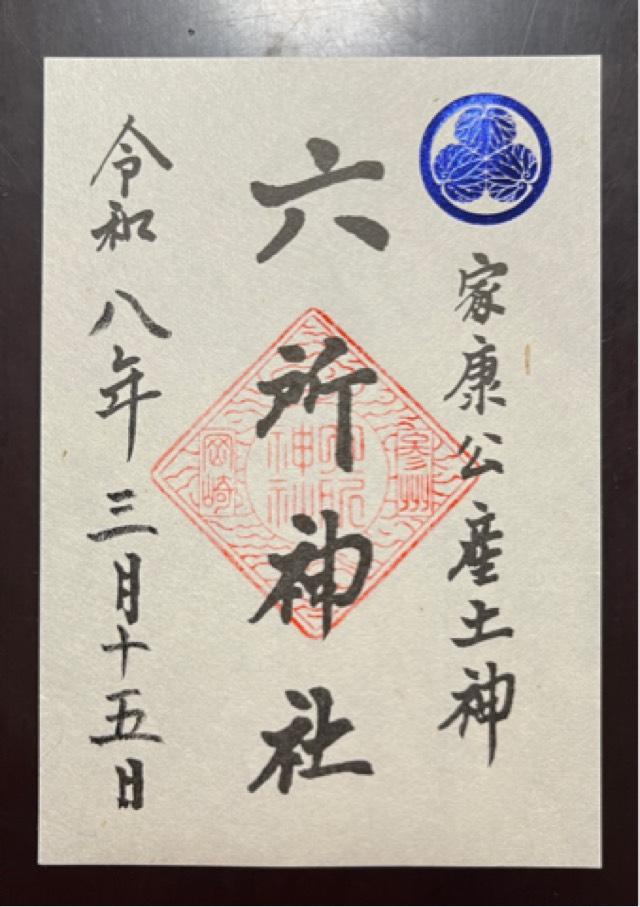 家康公産土神
六所神社
参州
六所
神社
岡崎
令和八年三月十五日